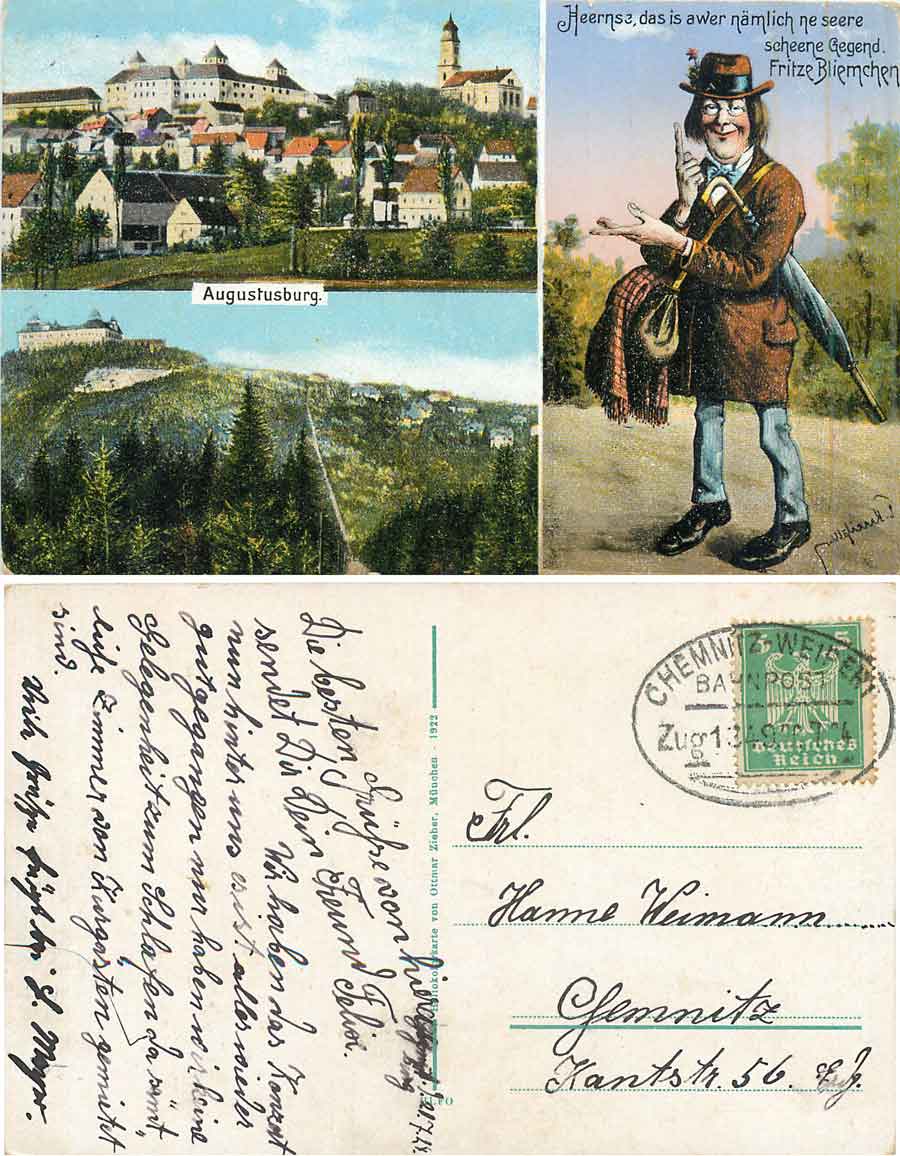 Heernse, das is awer nämlich ne seere
scheene Gegend.
Fritze Bliemchen
Augustusburg.
Die besten Grüße von hier
sendet Dir Dein Freund
Wir haben das Konzert
nun hinter uns es ist alles wieder
gutgegangen nur haben wir keine
Gelegenheit zum Schlafen da sämt,
liche Zimmer von Kurgästen gemietet
sind.
Viele Grüße
Photokolorkarte von Ottmar Zieher, München - 1922
CHEMNITZ-WEIPERT
BAHNPOST
Zug
5
Deutsches
Reich
Frl.
Hanne Weimann
Chemnitz
Kantstr. 56.